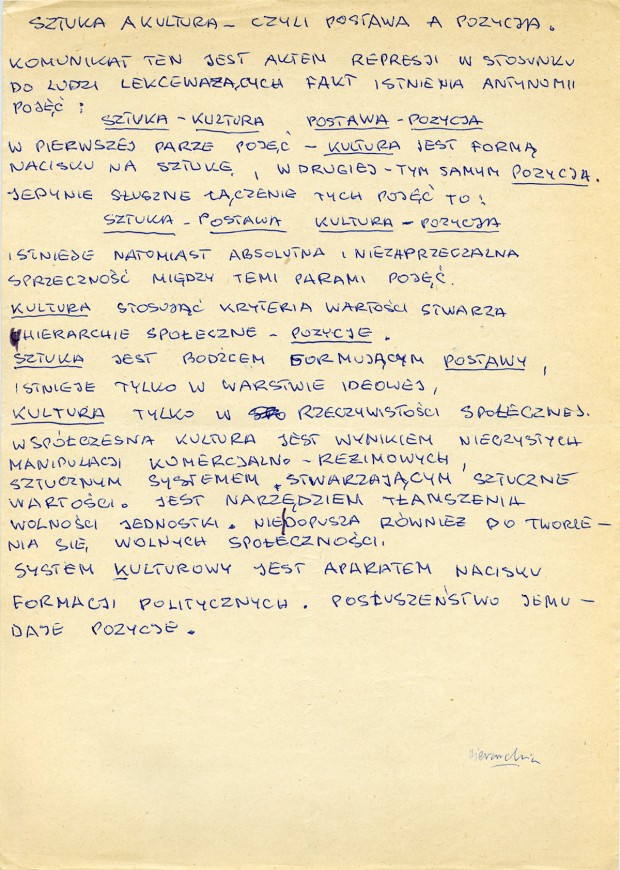 SZTUKA A KULTURA – CZYLI POSTAWA A POZYCJA.
KOMUNIKAT TEN JEST AKTEM REPRESJI W STOSUNKU
DO LUDZI LEKCEWAŻĄCYCH FAKT ISTNIENIA ANTYNOMII
POJĘĆ:
SZTUKA – KULTURA POSTAWA – POZYCJA
W PIERWSZEJ PARZE POJĘĆ – KULTURA JEST FORMĄ
NACISKU NA SZTUKĘ, W DRUGIEJ – TYM SAMYM POZYCJA.
JEDYNIE SŁUSZNE ŁĄCZENIE TYCH POJĘĆ TO:
SZTUKA – POSTAWA KULTURA – POZYCJA
ISTNIEJE NATOMIAST ABSOLUTNA I NIEZAPRZECZALNA
SPRZECZNOŚĆ MIĘDZY TEMI PARAMI POJĘĆ.
KULTURA STOSUJĄC KRYTERIA WARTOŚCI STWARZA
HIERARCHIE SPOŁECZNE – POZYCJE.
SZTUKA JEST BODŹCEM FORMUJĄCYM POSTAWY,
ISTNIEJE TYLKO W WARSTWIE IDEOWEJ,
KULTURA TYLKO W RZECZYWISTOŚCI SPOŁECZNEJ.
WSPÓŁCZESNA KULTURA JEST WYNIKIEM NIECZYSTYCH
MANIPULACJI KOMERCJALNO – REŻIMOWYCH,
SZTUCZNYM SYSTEMEM STWARZAJĄCYM SZTUCZNE
WARTOŚCI. JEST NARZĘDZIEM TŁAMSZENIA
WOLNOŚCI JEDNOSTKI. NIE DOPUSZA RÓWNIEŻ DO TWORZE–
NIA SIĘ WOLNYCH SPOŁECZNOŚCI.
SYSTEM KULTUROWY JEST APARATEM NACISKU
FORMACJI POLITYCZNYCH. POSŁUSZEŃSTWO JEMU –
DAJE POZYCJE.